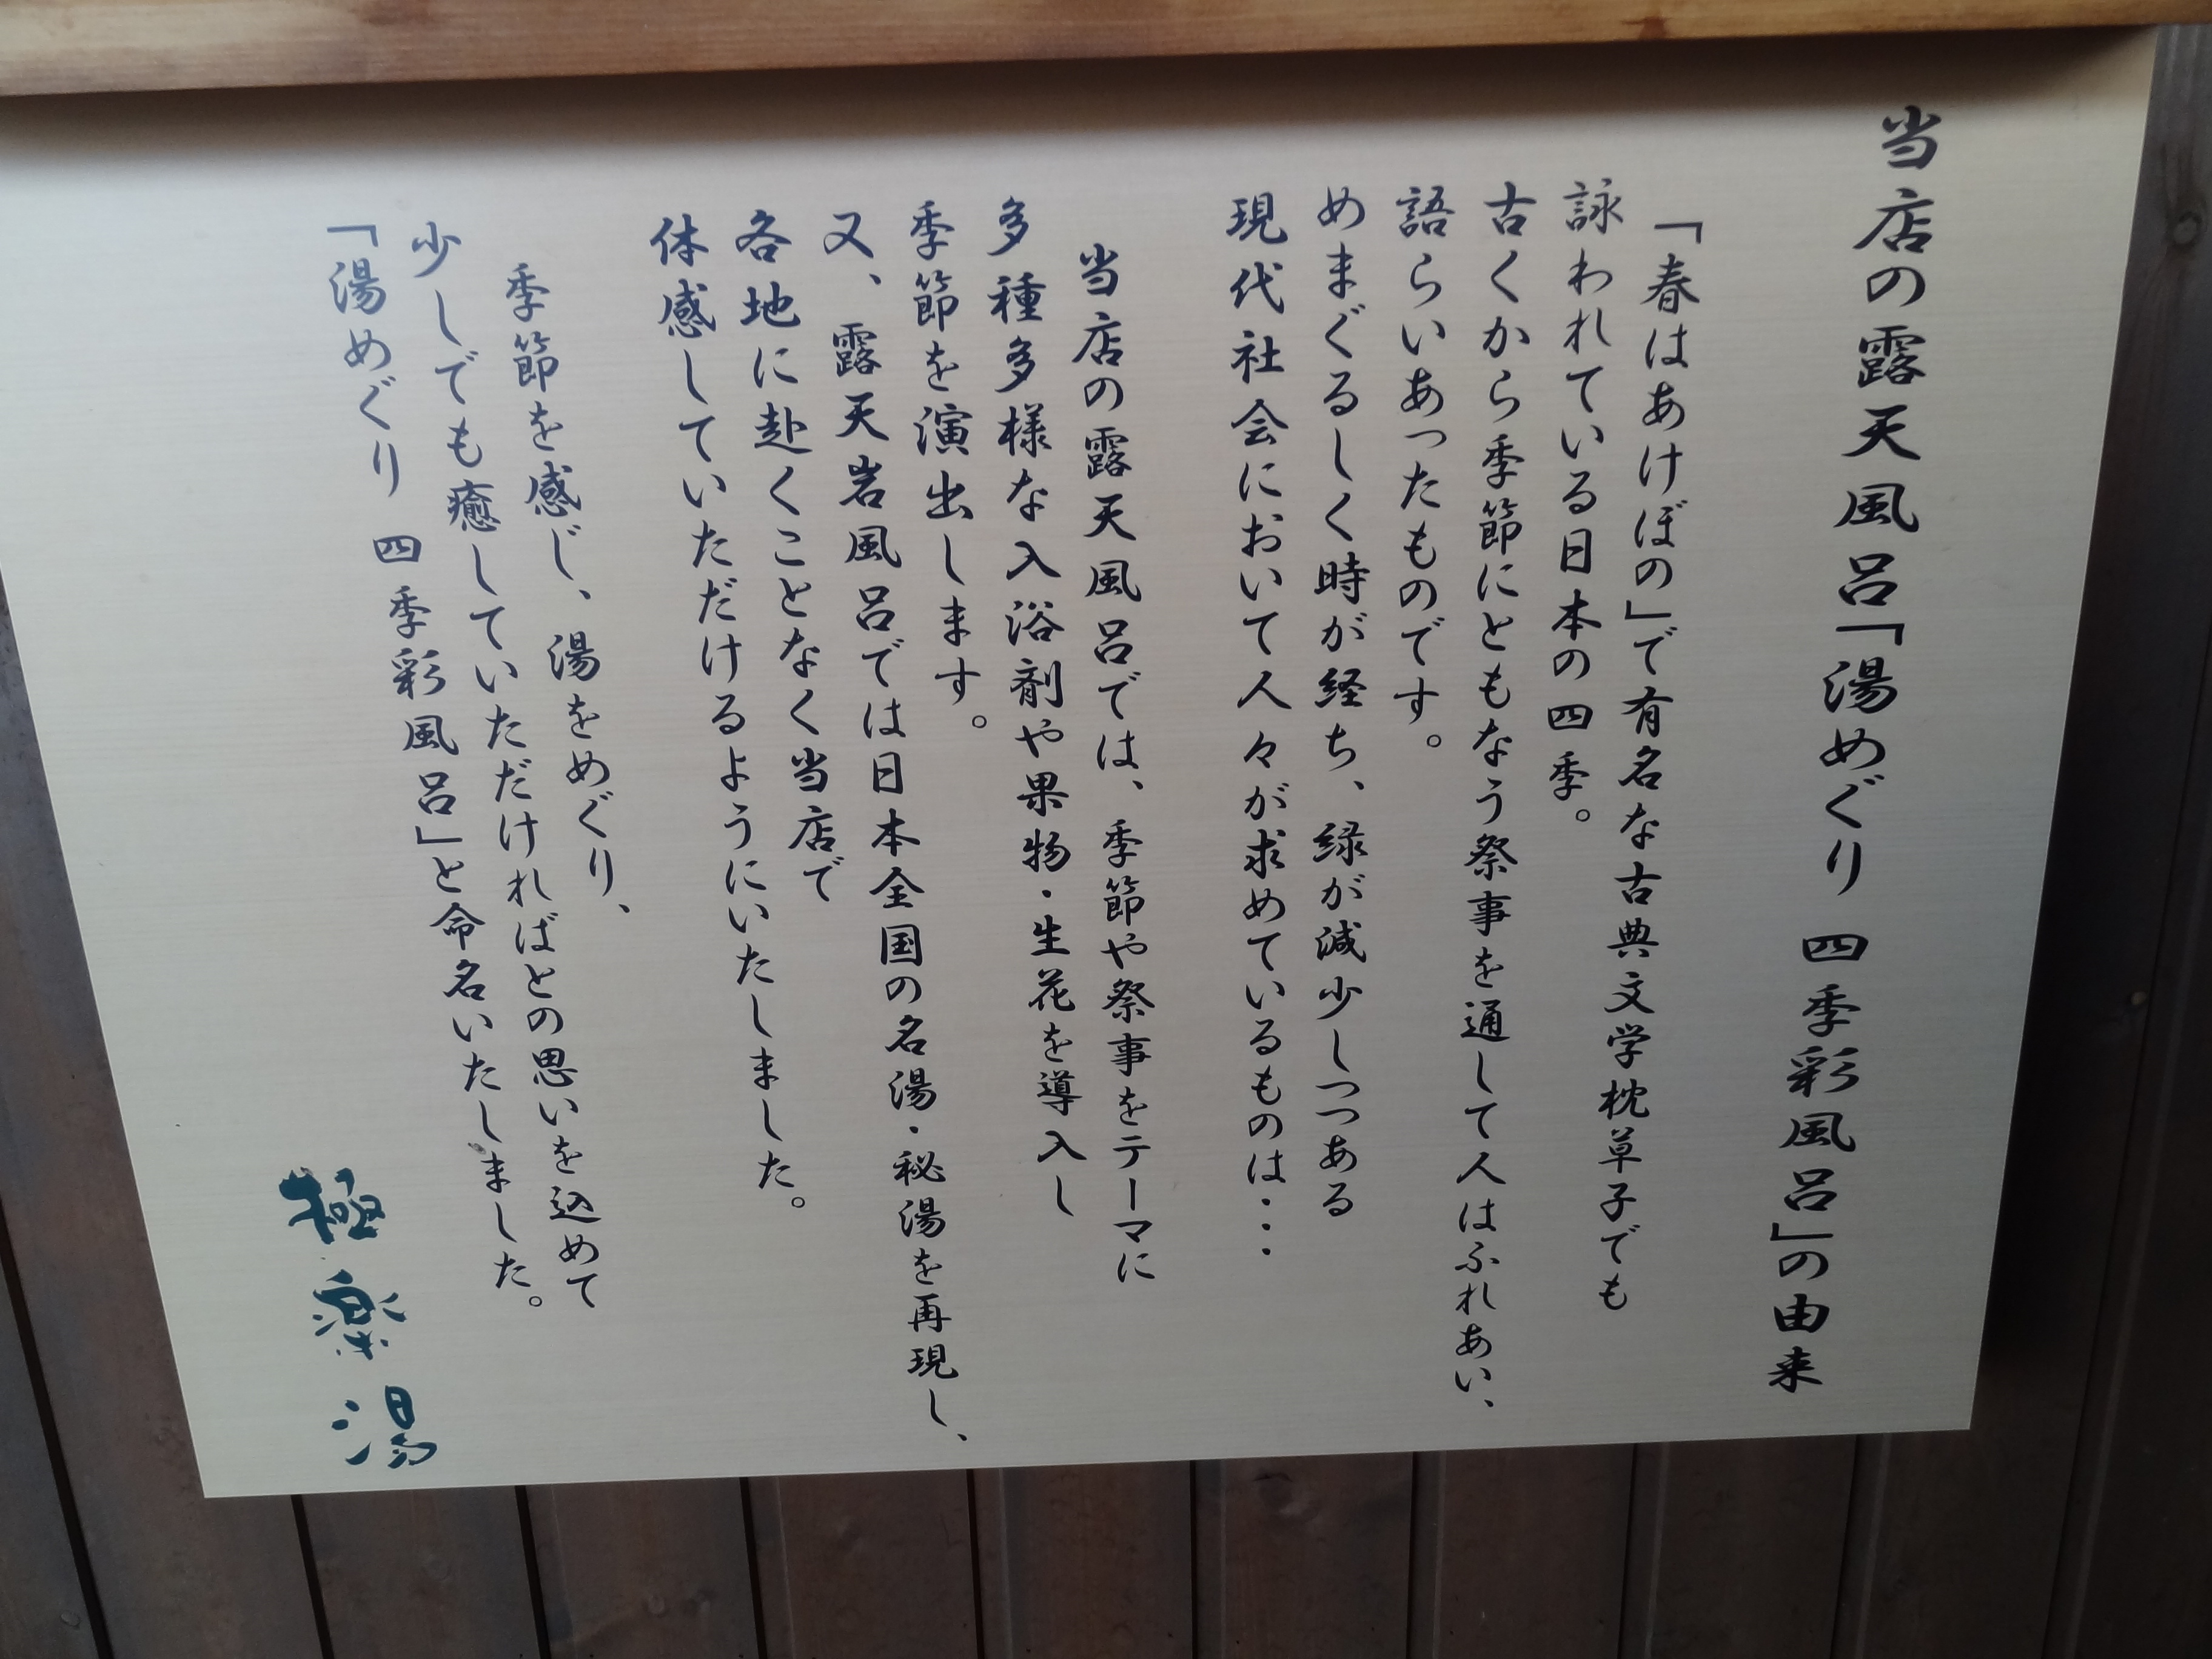 当店の露天風呂「湯めぐり 四季彩風呂」の由来
「春はあけぼの」で有名な古典文学枕草子でも
詠われている日本の四季。
古くから季節にともなう祭事を通して人はふれあい、
語らいあったものです。
めまぐるしく時が経ち、緑が減少しつつある
現代社会において人々が求めているものは・・・
当店の露天風呂では、季節や祭事をテーマに
多種多様な入浴剤や果物・生花を導入し
季節を演出します。
又、露天岩風呂では日本全国の名湯・秘湯を再現し、
各地に赴くことなく当店で
体感していただけるようにいたしました。
季節を感じ、湯をめぐり、
少しでも癒していただければとの思いを込めて
「湯めぐり 四季彩風呂」と命名いたしました。
極楽湯